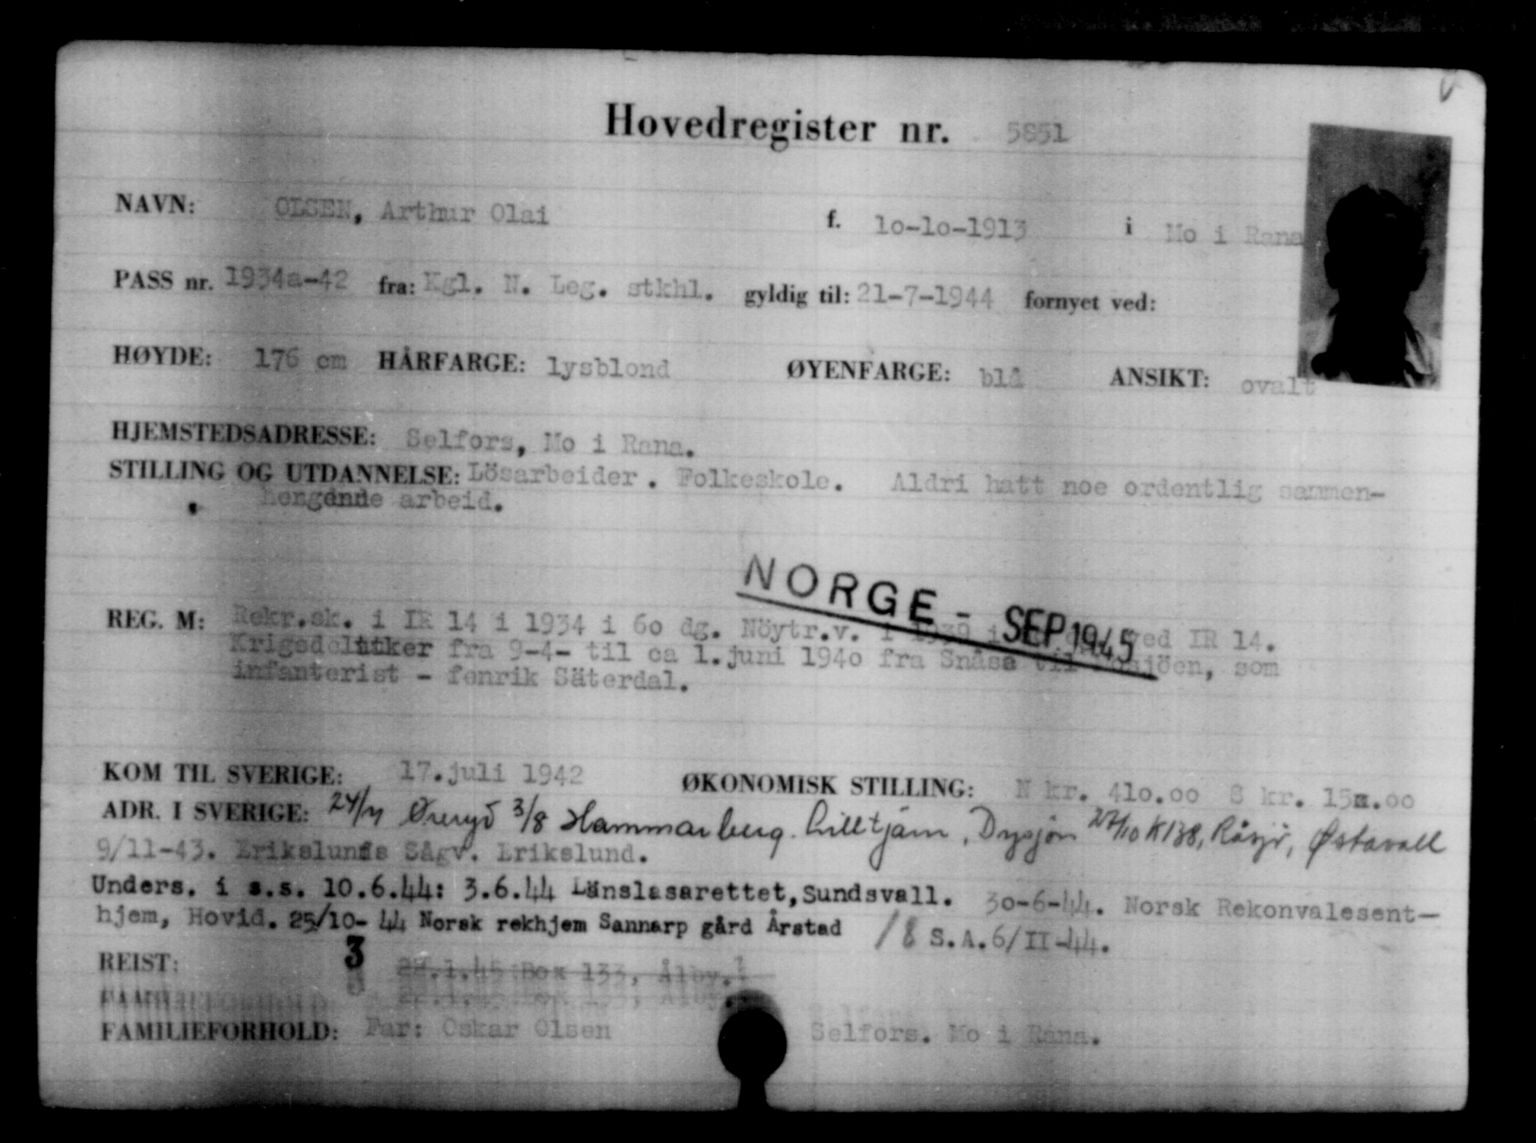 Hovedregister nr. 5851
NAVN: OLSEN, Arthur Olai f. 10-10-1913 i Mo i Rana
PASS nr. 1934a-42 fra: Kgl. N. Leg. stkhl. gyldig til: 21-7-1944 fornyet ved:
HØYDE: 176 cm HÅRFARGE: lysblond ØYENFARGE: blå ANSIKT: ovalt
HJEMSTEDSADRESSE: Selfors, Mo i Rana.
STILLING OG UTDANNELSE: Lösarbeider. Folkeskole. Aldri hatt noe ordentlig sammen-
hengende arbeid.
NORGE - SEP 1945
REG. M: Rekr.sk. i IR 14 i 1934 i 60 dg. Nöytr.v. i 1939 i ved IR 14.
Krigsdeltaker fra 9-4- til ca 1.juni 1940 fra Snåsa til Mosjöen, som
infanterist - fenrik Säterdal.
KOM TIL SVERIGE: 17.juli 1942 ØKONOMISK STILLING: N kr. 410.00 S kr. 15.00
ADR. I SVERIGE: 24/7 Øreryd 3/8 Hammarberg. Lilltjärn, Dysjön 27/10 K138, Råsjö, Østavall
9/11-43. Erikslunds Sågv. Erikslund.
Unders. i s.s. 10.6.44: 3.6.44 Länslasarettet, Sundsvall. 30-6-44. Norsk Rekonvalesent-
hjem, Hovid. 25/10-44 Norsk rekhjem Sannarp gård Årstad /8 S.A.6/II-44.
REIST: 3 22.1.45 Box 133, Ålby.
FAMILIEFORHOLD: Far: Oskar Olsen Selfors. Mo i Rana.